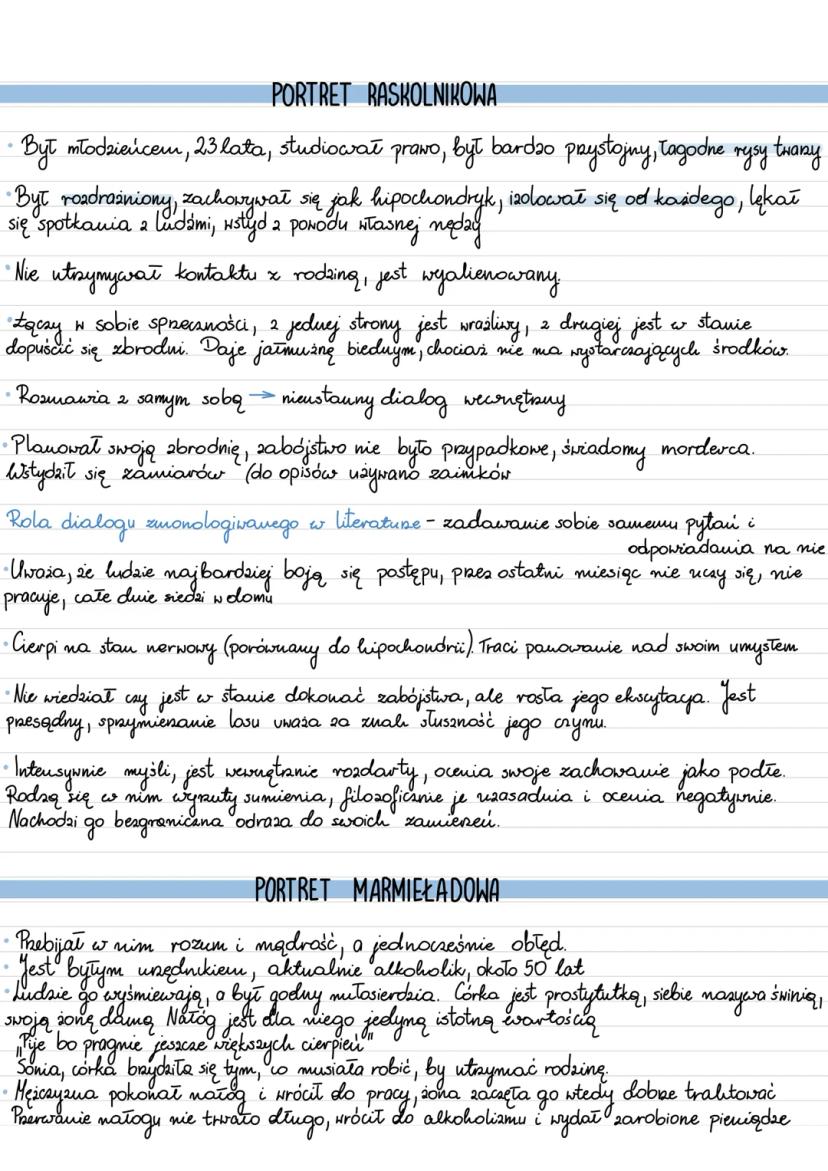 PORTRET RASKOLNIKOWA
• Był młodzieńcem, 23 lata, studiował prawo, był bardzo przystojny, łagodne rysy twarzy
• Był rozdrażniony, zachowywał się jak hipochondryk, izolował się od każdego, lękał
się spotkania z ludźmi, wstyd z powodu własnej nędzy
• Nie utrzymywał kontaktu z rodziną, jest wyalienowany.
• Łączy w sobie sprzeczności, z jednej strony jest wrażliwy, z drugiej jest w stanie
dopuścić się zbrodni. Daje jałmużnę biednym, chociaż nie ma wystarczających środków.
• Rozmawia z samym sobą → nieustanny dialog wewnętrzny
• Planował swoją zbrodnię, zabójstwo nie było przypadkowe, świadomy morderca.
Wstydził się zamiarów (do opisów używano zaimków
Rola dialogu zmonologiwanego w literaturze - zadawanie sobie samemu pytań i
odpowiadania na nie
• Uważa, że ludzie najbardziej boją się postępu, przez ostatni miesiąc nie uczy się, nie
pracuje, całe dnie siedzi w domu
• Cierpi na stan nerwowy (porównany do hipochondrii). Traci panowanie nad swoim umysłem
• Nie wiedział czy jest w stanie dokonać zabójstwa, ale rosła jego ekscytacja. Jest
przesądny, sprzymierzanie losu uważa za znak słuszność jego czynu.
• Intensywnie myśli, jest wewnętrznie rozdarty, ocenia swoje zachowanie jako podłe.
Rodzą się w nim wyrzuty sumienia, filozoficznie je uzasadnia i ocenia negatywnie.
Nachodzi go bezgraniczna odraza do swoich zamierzeń.
PORTRET MARMIEŁADOWA
• Przebijał w nim rozum i mądrość, a jednocześnie obłęd.
• Jest byłym urzędnikiem, aktualnie alkoholik, około 50 lat
• Ludzie go wyśmiewają, a był godny miłosierdzia. Córka jest prostytutką, siebie nazywa świnią,
swoją żonę damą. Nałóg jest dla niego jedyną istotną wartością
"Pije bo pragnie jeszcze większych cierpień"
Sonia, córka brzydziła się tym, co musiała robić, by utrzymać rodzinę.
• Mężczyzna pokonał nałóg i wrócił do pracy, żona zaczęła go wtedy dobrze traktować
Przerwanie nałogu nie trwało długo, wrócił do alkoholizmu i wydał zarobione pieniądze